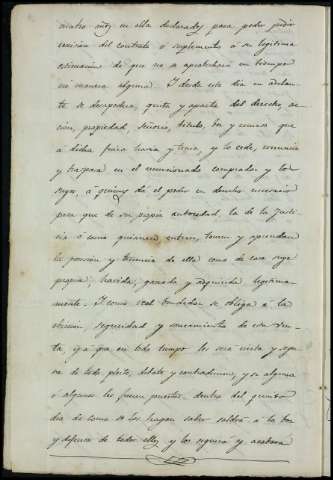 cuatro años en ella declarados para poder pedir
rescision del contrato o suplemento á su legitima
estimacion de que no se aprobechará en tiempo
ni manera alguna. I desde este dia en adelan-
te se desapodera, quita y aparta del derecho, ac-
cion, propiedad, señorio, titulo, voz y recurso que
á dicha finca tenia y tenga, y lo cede, renuncia
y traspasa en el mencionado comprador y los
suyos, á quienes dá el poder en derecho necesario
para que de su propia autoridad, ó la de la Justi-
cia ó como quisieren entren, tomen y aprendan
la posesion y tenencia de ella como de cosa suya
propia, havida, ganada y adquirida legitima-
mente. I como real vendedor se obliga á la
eviccion, seguridad y saneamiento de esta ven-
ta, y á que en todo tiempo les será cierta y segu-
ra de todo pleito, debate y contradiccion, y si alguno
ó algunos les fueren puestos, dentro del quinto
dia de como se los hagan saber saldrá á la voz
y defensa de todos ellos, y los seguirá y acabará